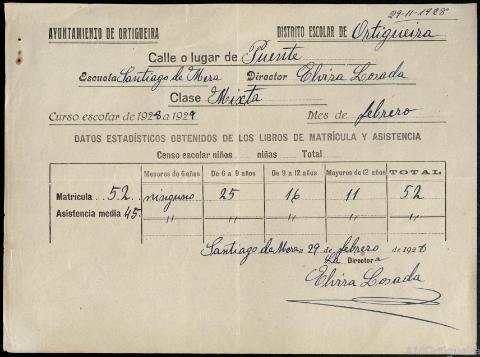 29-11-1928
AYUNTAMIENTO DE ORTIGUEIRA
DISTRITO ESCOLAR DE Ortigueira
Calle o lugar de Puente
Escuela Santiago de Mera Director Elvira Losada
Clase Mixta
Curso escolar de 1928 a 1929 Mes de febrero
DATOS ESTADÍSTICOS OBTENIDOS DE LOS LIBROS DE MATRÍCULA Y ASISTENCIA
Censo escolar niños niñas Total
Menores de 6 años De 6 a 9 años De 9 a 12 años Mayores de 12 años TOTAL
Matrícula 52 ninguno 25 16 11 52
Asistencia media 45 " " " " "
Santiago de Mera a 29 de febrero de 1928
La Directora
Elvira Losada